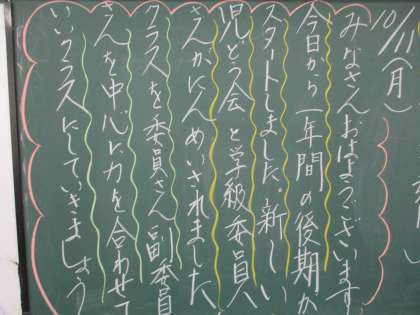 10/11(月)
みなさんおはようございます
今日から一年間の後期が
スタートしました。新しい
児どう会と学級委員へ
さんがにんめいされました
クラスを委員さん副委員
さんを中心に力を合わせて
いいクラスにしていきましょう